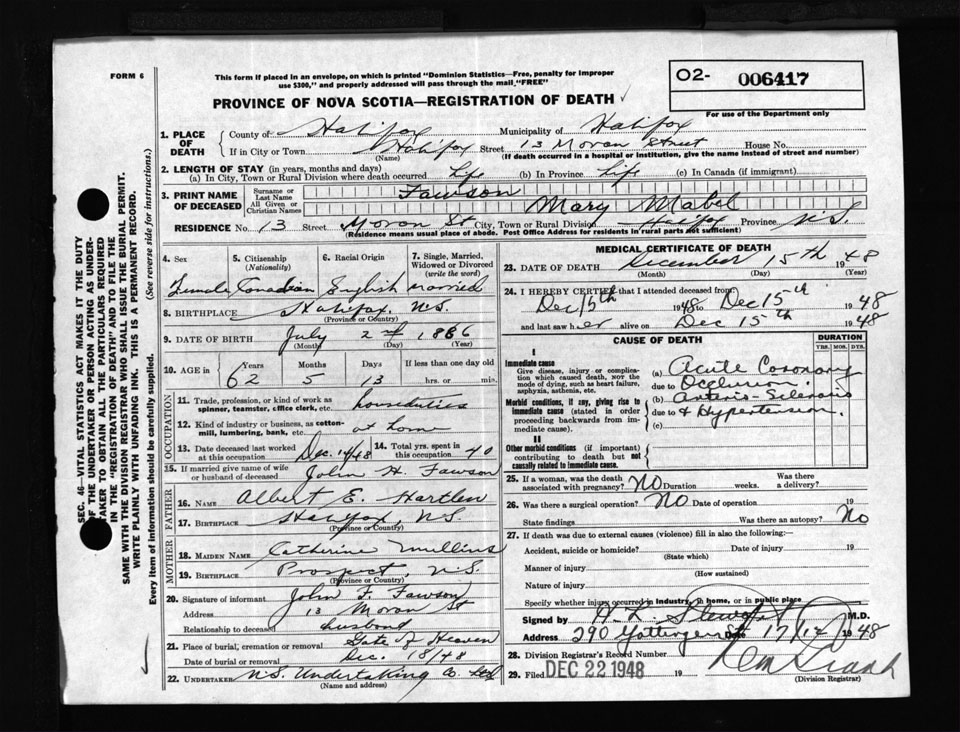 FORM 6
This form if placed in an envelope, on which is printed "Dominion Statistics—Free, penalty for improper
use $300," and properly addressed will pass through the mail "FREE"
02- 006417
PROVINCE OF NOVA SCOTIA—REGISTRATION OF DEATH
For use of the Department only
1. PLACE OF DEATH
County of Halifax Municipality of Halifax
If in City or Town Halifax Street 13 Moran Street House No.
(Name) (If death occurred in a hospital or institution, give the name instead of street and number)
2. LENGTH OF STAY (in years, months and days)
(a) In City, Town or Rural Division where death occurred Life (b) In Province Life (c) In Canada (if immigrant)
3. PRINT NAME OF DECEASED
Surname or Last Name Fawson
All Given or Christian Names Mary Mabel
RESIDENCE No. 13 Street Moran St City, Town or Rural Division Halifax Province N.S.
(Residence means usual place of abode. Post Office Address for residents in rural parts not sufficient)
4. Sex 5. Citizenship (Nationality) 6. Racial Origin 7. Single, Married, Widowed or Divorced (write the word)
Female Canadian English Married
8. BIRTHPLACE Halifax, N.S.
(Province or Country)
9. DATE OF BIRTH July 2nd 1886
(Month) (Day) (Year)
10. AGE in Years Months Days If less than one day old
62 5 13 hrs. or min.
OCCUPATION
11. Trade, profession, or kind of work as spinner, teamster, office clerk, etc. houseduties
12. Kind of industry or business, as cotton-mill, lumbering, bank, etc. at home
13. Date deceased last worked at this occupation Dec 14/48 14. Total yrs. spent in this occupation 40
15. If married give name of wife or husband of deceased John H. Fawson
FATHER
16. NAME Albert E. Hartlen
17. BIRTHPLACE Halifax N.S.
(Province or Country)
MOTHER
18. MAIDEN NAME Catherine Mullins
19. BIRTHPLACE Prospect, N.S.
(Province or Country)
20. Signature of informant John F. Fawson
Address 13 Moran St
Relationship to deceased husband
21. Place of burial, cremation or removal Gate of Heaven
Date of burial or removal Dec. 18/48
22. UNDERTAKER N.S. Undertaking Co. Ltd
(Name and address)
MEDICAL CERTIFICATE OF DEATH
23. DATE OF DEATH December 15th 1948
(Month) (Day) (Year)
24. I HEREBY CERTIFY that I attended deceased from:
Dec 15th 1948 Dec 15th 1948
and last saw her alive on Dec 15th 1948
CAUSE OF DEATH DURATION
YRS. MOS. DYS.
I
Immediate cause (a) Acute Coronary
Give disease, injury or complication which caused death, not the mode of dying, such as heart failure, asphyxia, asthenia, etc.
due to Occlusion.
Morbid conditions, if any, giving rise to immediate cause (stated in order proceeding backwards from immediate cause).
(b) Arterio-Sclerosis
due to & Hypertension.
(c)
II
Other morbid conditions (if important) contributing to death but not causally related to immediate cause.
25. If a woman, was the death associated with pregnancy? NO Duration weeks. Was there a delivery?
26. Was there a surgical operation? NO Date of operation 19
State findings Was there an autopsy? No
27. If death was due to external causes (violence) fill in also the following:
Accident, suicide or homicide? Date of injury 19
(State which)
Manner of injury
(How sustained)
Nature of injury
Specify whether injury occurred in industry, in home, or in public place
Signed by M.D.
Address 290 Gottingen St Date 17/12 1948
28. Division Registrar's Record Number
29. Filed DEC 22 1948 19
(Division Registrar)
SEC. 46—VITAL STATISTICS ACT MAKES IT THE DUTY
OF THE UNDERTAKER OR PERSON ACTING AS UNDER-
TAKER TO OBTAIN ALL THE PARTICULARS REQUIRED
IN THE "REGISTRATION OF DEATH" AND TO FILE THE
SAME WITH THE DIVISION REGISTRAR WHO SHALL ISSUE THE BURIAL PERMIT.
WRITE PLAINLY WITH UNFADING INK. THIS IS A PERMANENT RECORD.
Every item of information should be carefully supplied. (See reverse side for instructions.)